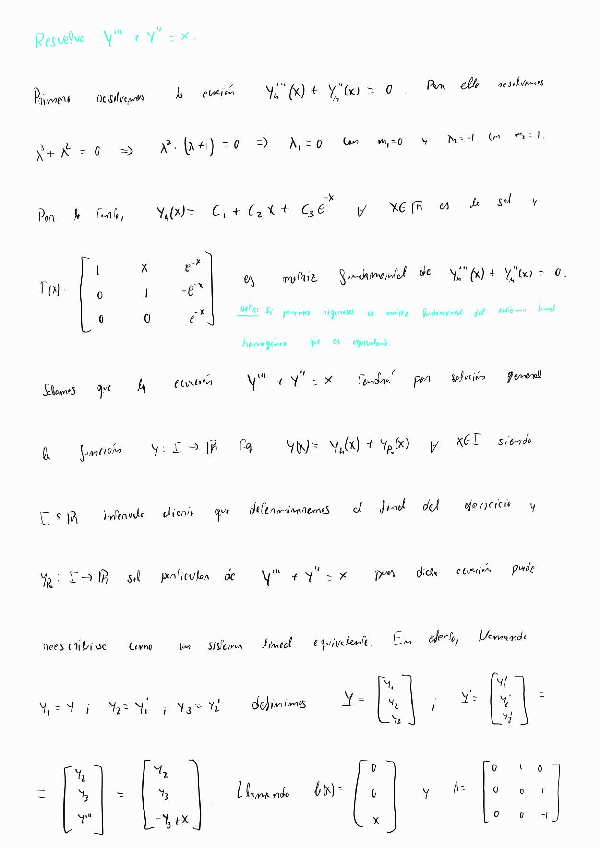 Resuelve y''' + y'' = x.
Primero resolvemos la ecuación y_h'''(x) + y_h''(x) = 0. Para ello resolvemos
λ³ + λ² = 0 => λ²·(λ+1) = 0 => λ₁ = 0 con m₁=0 y λ₂=-1 con m₂=1.
Por lo tanto, y_h(x) = C₁ + C₂x + C₃e^-x ∀ x∈ℝ es la sol y
F(x)= [1 x e^-x; 0 1 -e^-x; 0 0 e^-x] es matriz fundamental de y_h'''(x) + y_h''(x) = 0.
NOTA: Si ponemos rigurosos es matriz fundamental del sistema lineal
homogéneo que es equivalente.
Sabemos que la ecuación y''' + y'' = x tendrá por solución general
la función y: I → ℝ tq y(x) = y_h(x) + y_p(x) ∀ x∈I siendo
I ⊆ ℝ intervalo abierto que determinaremos al final del ejercicio y
y_p: I → ℝ sol particular de y''' + y'' = x pues dicha ecuación puede
reescribirse como un sistema lineal equivalente. En efecto, llamando
y₁ = y ; y₂ = y₁' ; y₃ = y₂' definimos Y = [y₁; y₂; y₃] ; Y' = [y₁'; y₂'; y₃'] =
= [y₂; y₃; y'''] = [y₂; y₃; -y₃+x]. Llamando b(x) = [0; 0; x] y A = [0 1 0; 0 0 1; 0 0 -1]